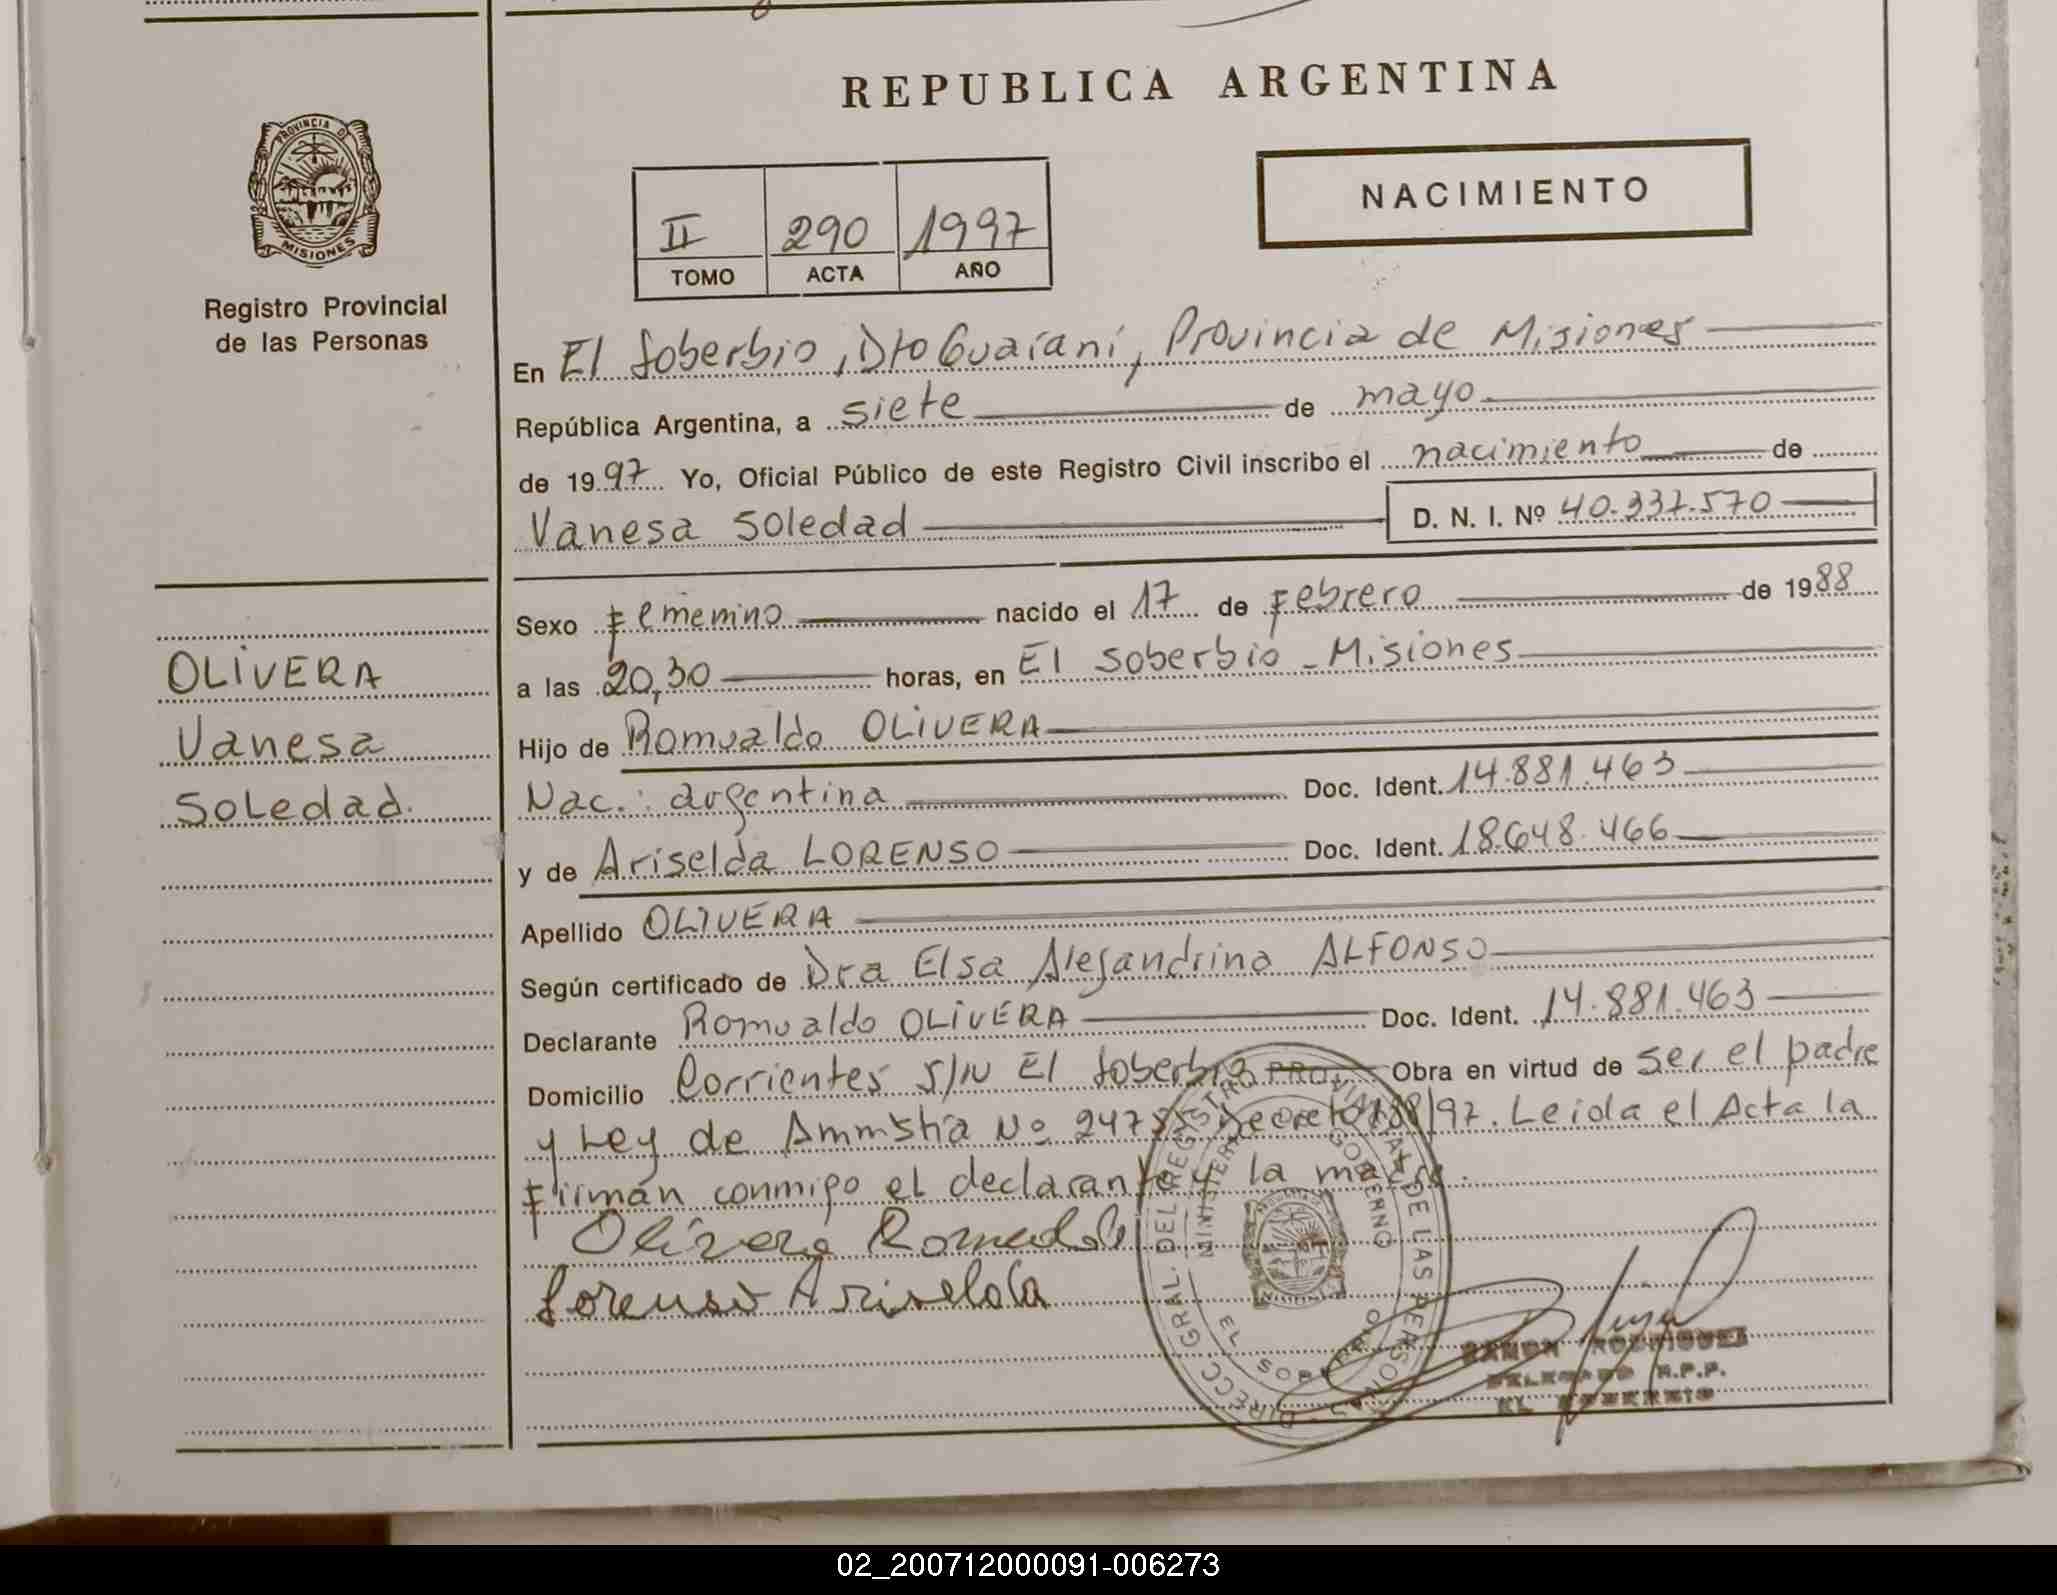 REPUBLICA ARGENTINA
PROVINCIA DE
MISIONES
Registro Provincial
de las Personas
NACIMIENTO
II 290 1997
TOMO ACTA AÑO
En El Soberbio, Dto Guaraní, Provincia de Misiones
República Argentina, a siete de mayo
de 1997 Yo, Oficial Público de este Registro Civil inscribo el nacimiento de
Vanesa Soledad D. N. I. Nº 40.337.570
Sexo Femenino nacido el 17 de Febrero de 1988
a las 20,30 horas, en El Soberbio - Misiones
Hijo de Romualdo OLIVERA
Nac.: argentina Doc. Ident. 14.881.463
y de Ariselda LORENSO Doc. Ident. 18.648.466
Apellido OLIVERA
Según certificado de Dra Elsa Alejandrina ALFONSO
Declarante Romualdo OLIVERA Doc. Ident. 14.881.463
Domicilio Corrientes S/N El Soberbio Obra en virtud de ser el padre
y Ley de Amnistia Nº 24755 Decreto 188/97. Leída el Acta la
Firman conmigo el declarante y la madre.
Olivera Romualdo
Lorenso Ariselda
OLIVERA
Vanesa
Soledad.
DIRECC. GRAL. DEL REGISTRO PROVINCIAL DE LAS PERSONAS
MINISTERIO GOBIERNO
EL SOBERBIO
MISIONES
RAMON RODRIGUEZ
DELEGADO R.P.P.
EL SOBERBIO
02_200712000091-006273